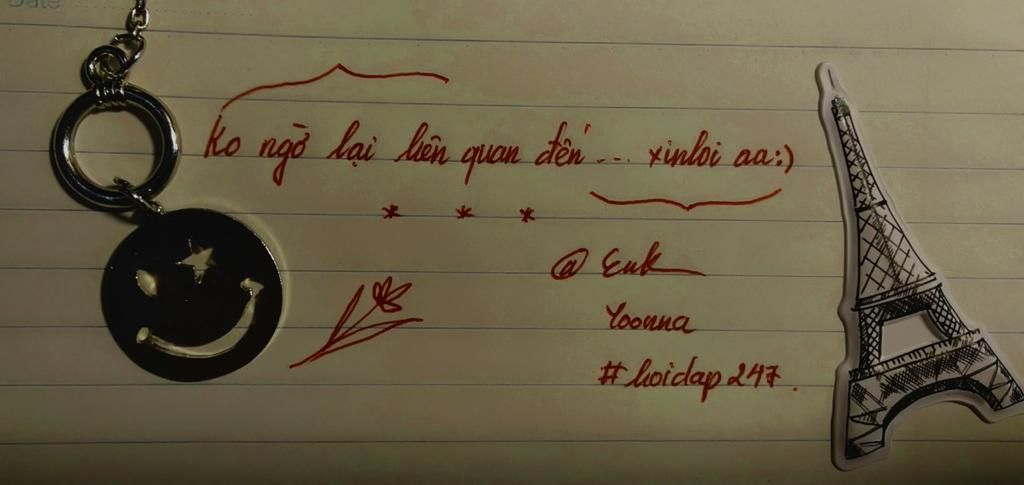 Date
Ko ngờ lại liên quan đến ... xinloi aa:)
* * *
@ Euk
Yoonna
#hoidap247.